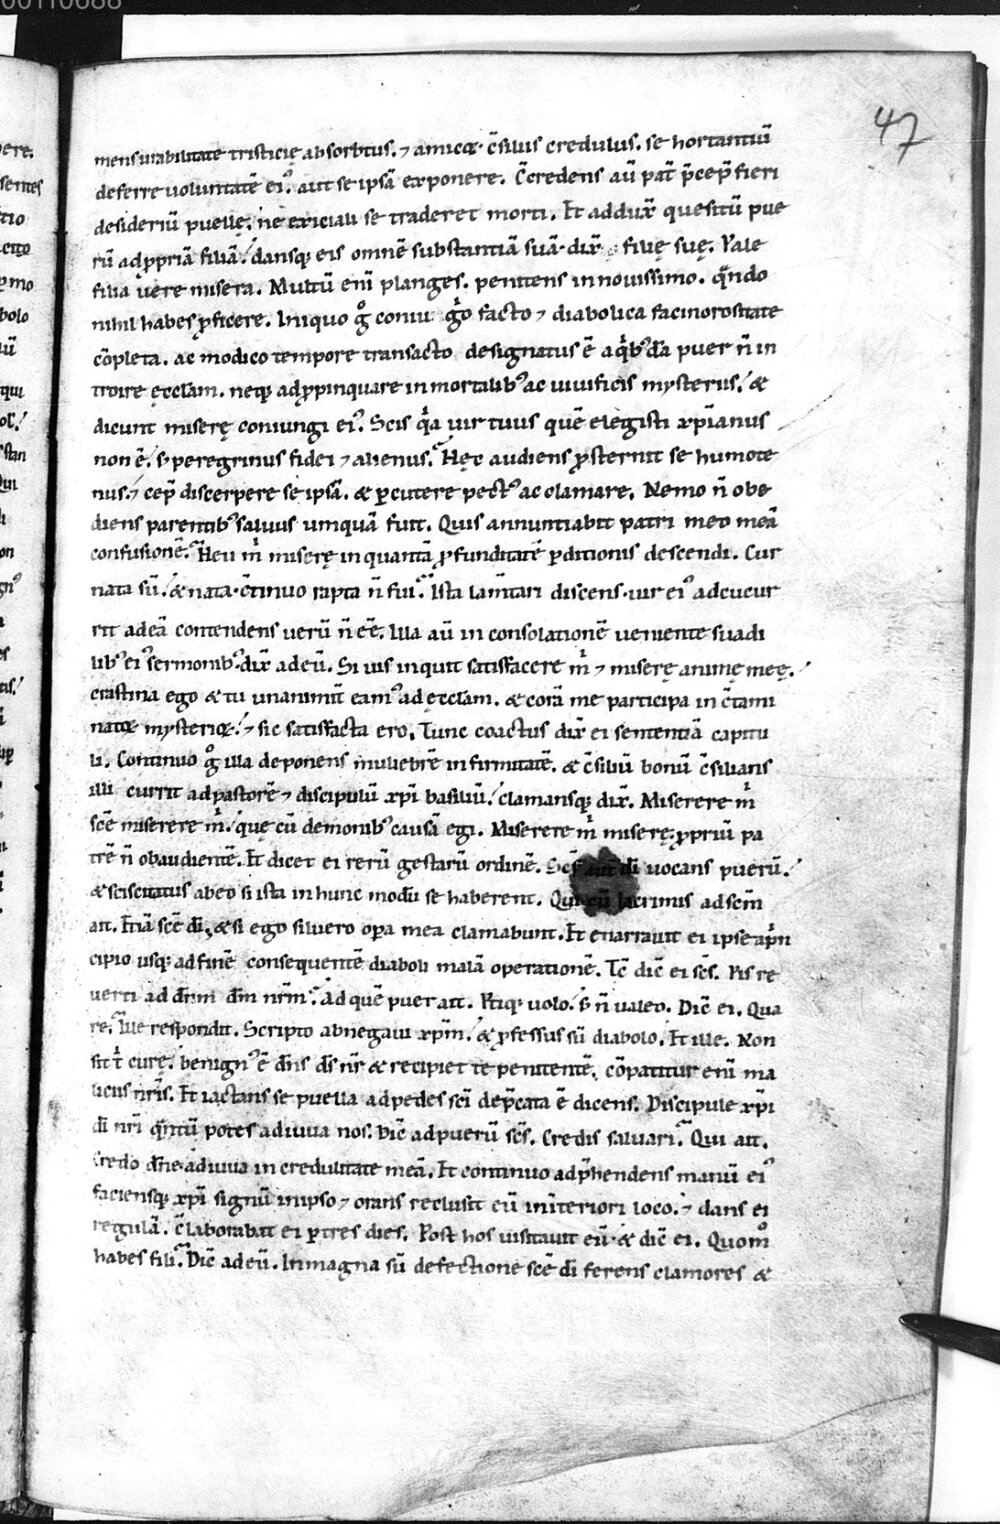 00110688
47
mensurabilitate tristicię absorbtus. ⁊ amicoꝝ c̄siliis credulus. se hortantiū
deferre uoluntatē ei᾽. aut se ipsā exponere. C̄credens aū pat̄ p̄cep̄ fieri
desideriū puellę. ne exiciali se traderet morti. Et addux̄ quesitū pue
rū ad ꝓpriā filiā. dansq; eis omnē substantiā suā. dix̄ filię suę. Vale
filia uere misera. Multū eni̅ planges. penitens in nouissimo. qn̄do
nihil habes ꝓficere. Iniquo gͦ coniu gͥo facto ⁊ diabolica facinorositate
cōpleta. ac modico tempore transacto designatus ē a qͥb᾽dā puer n̄ in
troire ęcclam. neq; adꝓpinquare inmortalib᾽ ac uiuificis mysteriis. &
dicunt miserę coniungi ei᾽. Scis qͥa uir tuus quē elegisti xp̄ianus
non ē. s; peregrinus fidei ⁊ alienus. Hęc audiens ꝓsternit se humote
nus. ⁊ cep̄ discerpere se ipsā. & ꝑcutere pect᾽ ac clamare. Nemo n̄ obe
diens parentib᾽ saluus umquā fuit. Quis annuntiabit patri meo meā
confusionē. Heu m̄ miserę in quantā ꝓfunditatē ꝑditionis descendi. Cur
nata sū. & nata c̄tinuo rapta n̄ fui. Ista lam̄tari discens. uir ei᾽ adcucur
rit ad eā contendens uerū n̄ eē. Illa aū in consolationē ueniente suadi
lib᾽ ei᾽ sermonib᾽ dix̄ ad eū. Si uis inquit satisfacere m̄ ⁊ miserę animę meę.
crastina ego & tu unanimit̄ eam᾽ ad ęcclam. & corā me participa in c̄tami
natoꝝ mysterioꝝ. ⁊ sic satisfacta ero. Tunc coactus dix̄ ei sententiā capitu
li. Continuo gͦ illa deponens muliebrē infirmitatē. & c̄siliū bonū c̄silians
illi currit ad pastorē ⁊ discipulū xp̄i basiliū. clamansq; dix̄. Miserere m̄
sc̄e miserere m̄. quę cū demonib᾽ causā egi. Miserere m̄ miserę. ꝓpriū pa
trē n̄ obaudientē. Et dicet ei rerū gestarū ordinē. Sc̄s aut̄ dī uocans puerū.
& sciscitatus ab eo si ista in hunc modū se haberent. Qui cū lacrimis ad sc̄m
ait. Etiā sc̄e dī. & si ego siluero opa mea clamabunt. Et enarrauit ei ipse a pͥn
cipio usq; ad finē consequentē diaboli malā operationē. Tc̄ dic̄ ei sc̄s. Vis re
uerti ad dn̄m dm̄ nr̄m. Ad quē puer ait. Etiq; uolo. s; n̄ ualeo. Dic̄ ei. Qua
re. Ille respondit. Scripto abnegaui xp̄m. & ꝓfessus sū diabolo. Et ille. Non
sit tͥ curę. benign᾽ ē dn̄s ds̄ nr̄ & recipiet te penitentē. cōpatitur eni̅ ma
liciis nr̄is. Et iactans se puella ad pedes sc̄i dep̄cata ē dicens. Discipule xp̄i
dī nr̄i qn̄tū potes adiuua nos. Dic̄ ad puerū sc̄s. Credis saluari. Qui ait.
Credo dn̄e adiuua incredulitatē meā. Et continuo adp̄hendens manū ei᾽
faciensq; xp̄i signū in ipso ⁊ orans reclusit eū in īteriori loco. ⁊ dans ei
regulā. c̄laborabat ei ꝑ tres dies. Post hos uisitauit eū. & dic̄ ei. Quomͦ
habes fili. Dic̄ ad eū. In magna sū defectione sc̄e dī ferens clamores &